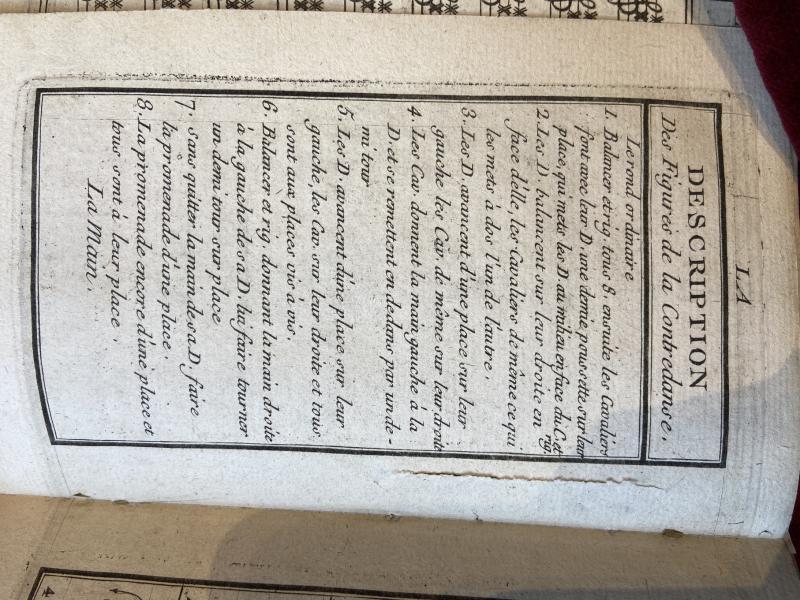 LA
DESCRIPTION
Des Figures de la Contredanse.
Le rond ordinaire
1. Balancer et rig. tous 8. ensuite les Cavaliers
font avec leur D. une demie poussette sur leur
place, qui mets les D. au milieu en face du C. et
2. Les D. balancent sur leur droite en rig.
face d'élle, les Cavaliers de même ce qui
les mets à dos l'un de l'autre.
3. Les D. avancent d'une place sur leur
gauche les Cav. de même sur leur droite
4. Les Cav. donnent la main gauche à la
D. et se remettent en dedans par un de-
mi tour
5. Les D. avancent d'une place sur leur
gauche, les Cav. sur leur droite et tous
sont aux places vis à vis.
6. Balancer et rig. donnant la main droite
à la gauche de sa D. lui faire tourner
un demi tour sur place
7. Sans quitter la main de sa D. faire
la promenade d'une place.
8. La promenade encore d'une place et
tous sont à leur place.
La Main.
4.